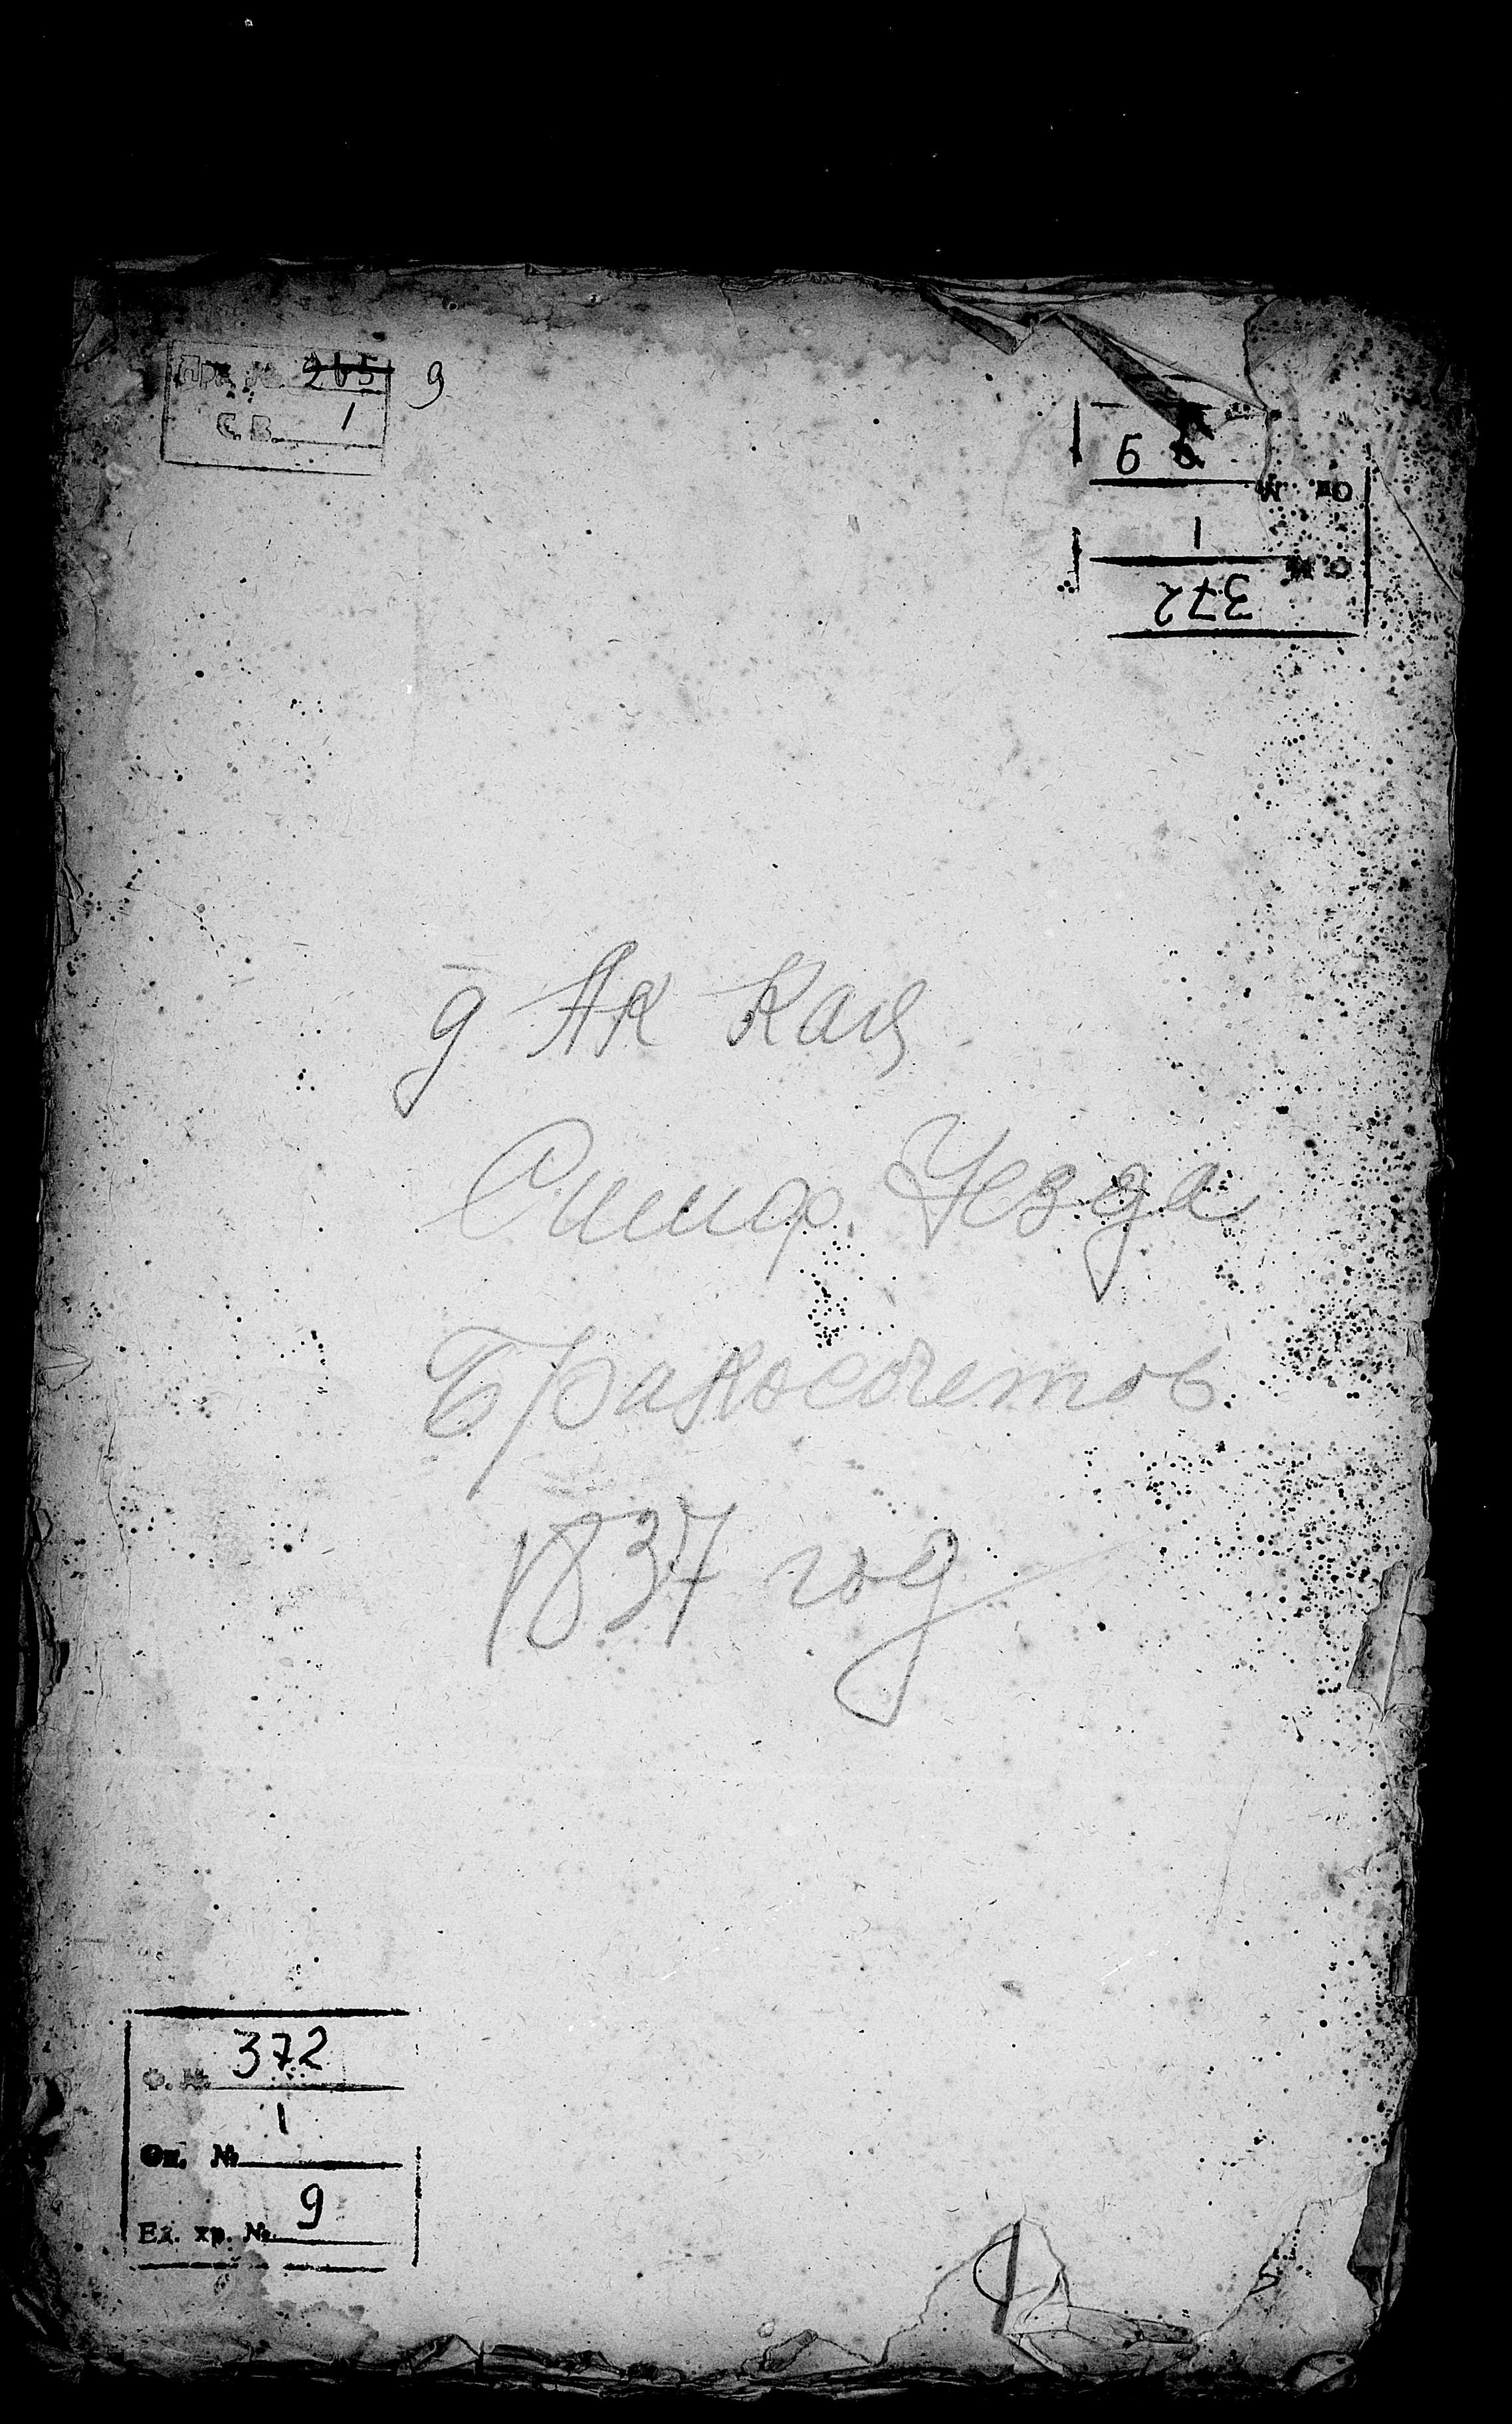 Пр. № 265 9
С. В. 1
Оп. №
1
372
д Ак Кая
Симф. Уезда
Бракосочетов
1837 год
Ф. № 372
Оп. № 1
Ед. хр. № 9